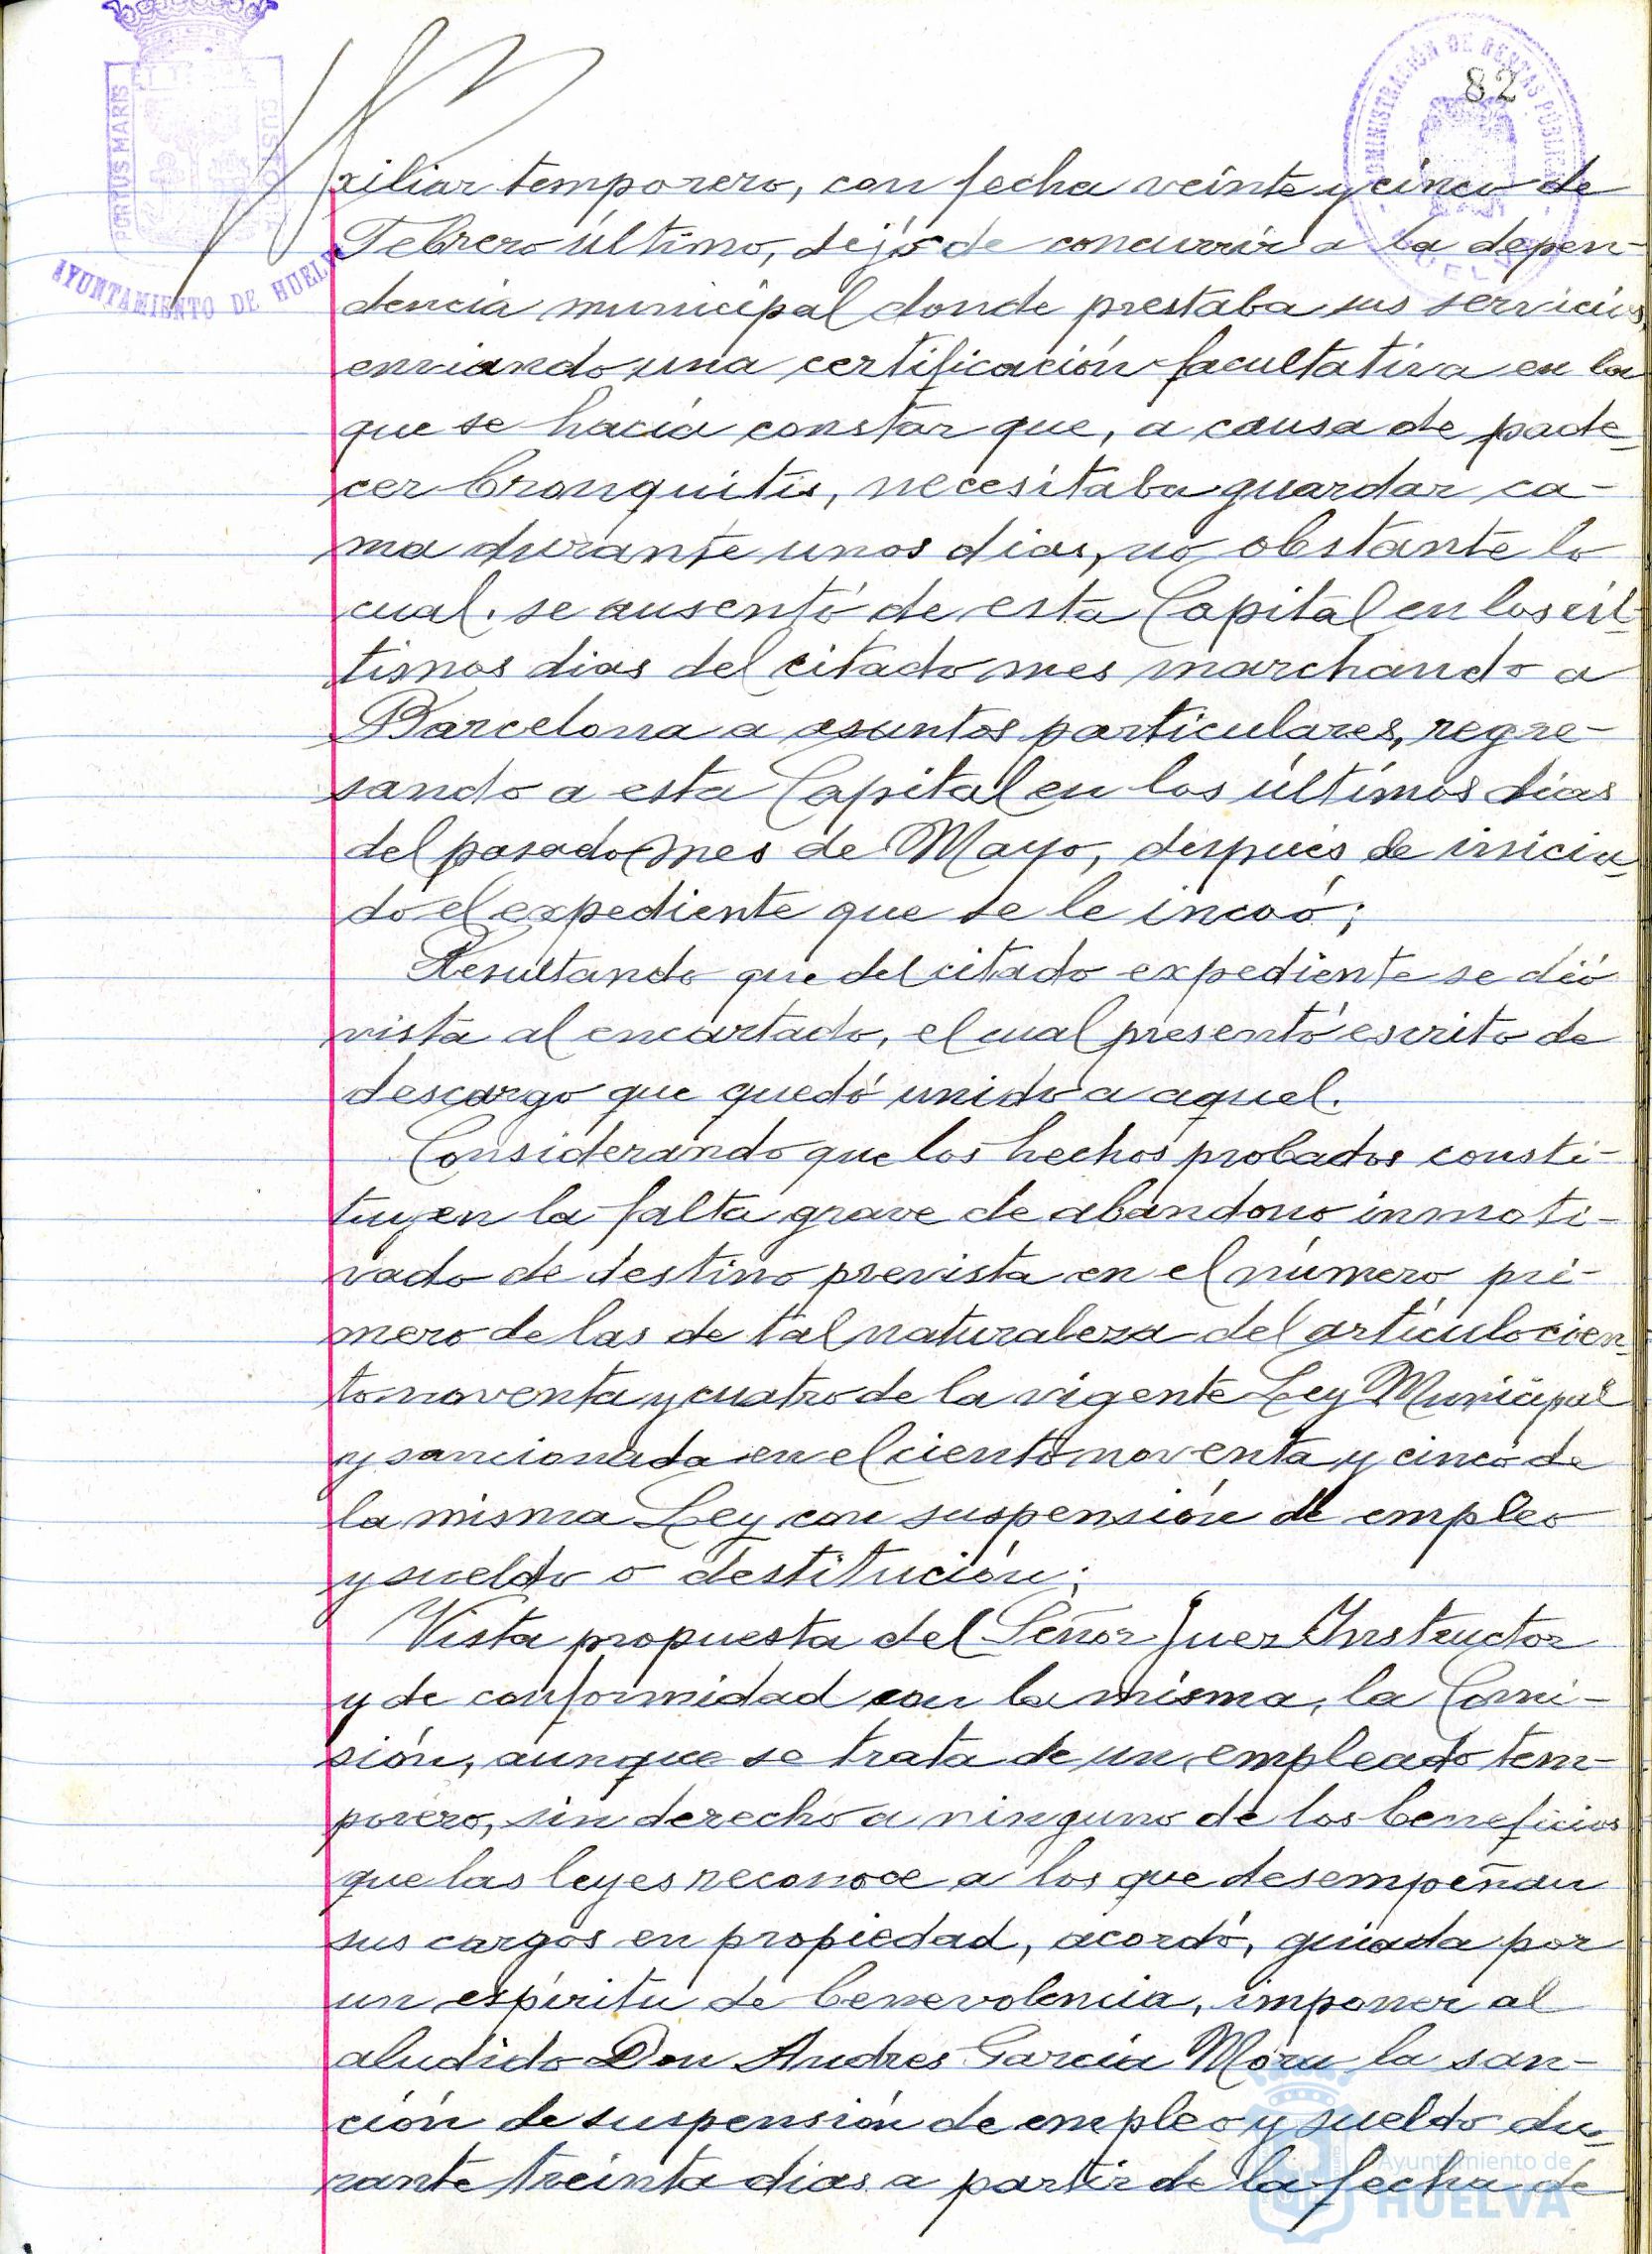 82
PORTUS MARIS
AYUNTAMIENTO DE HUELVA
ADMINISTRACIÓN DE RENTAS PÚBLICAS
HUELVA
xiliar temporero, con fecha veinte y cinco de
Febrero último, dejó de concurrir a la depen-
dencia municipal donde prestaba sus servicios,
enviando una certificación facultativa en la
que se hacía constar que, a causa de pade-
cer bronquitis, necesitaba guardar ca-
ma durante unos dias, no obstante lo
cual, se ausentó de esta Capital en los úl-
timos dias del citado mes marchando a
Barcelona a asuntos particulares, regre-
sando a esta Capital en los últimos días
del pasado mes de Mayo, después de inicia-
do el expediente que se le incoó;
Resultando que del citado expediente se dió
vista al encartado, el cual presentó escrito de
descargo que quedó unido a aquel.
Considerando que los hechos probados consti-
tuyen la falta grave de abandono inmoti-
vado de destino prevista en el número pri-
mero de las de tal naturaleza del artículo cien-
to noventa y cuatro de la vigente Ley Municipal
y sancionada en el ciento noventa y cinco de
la misma Ley con suspensión de empleo
y sueldo o destitución;
Vista propuesta del Señor Juez Instructor
y de conformidad con la misma, la Comi-
sión, aunque se trata de un empleado tem-
porero, sin derecho a ninguno de los beneficios
que las leyes reconoce a los que desempeñan
sus cargos en propiedad, acordó, guiada por
un espíritu de benevolencia, imponer al
aludido Don Andres Garcia Mora la san-
ción de suspensión de empleo y sueldo du-
rante treinta dias a partir de la fecha de
Ayuntamiento de
HUELVA